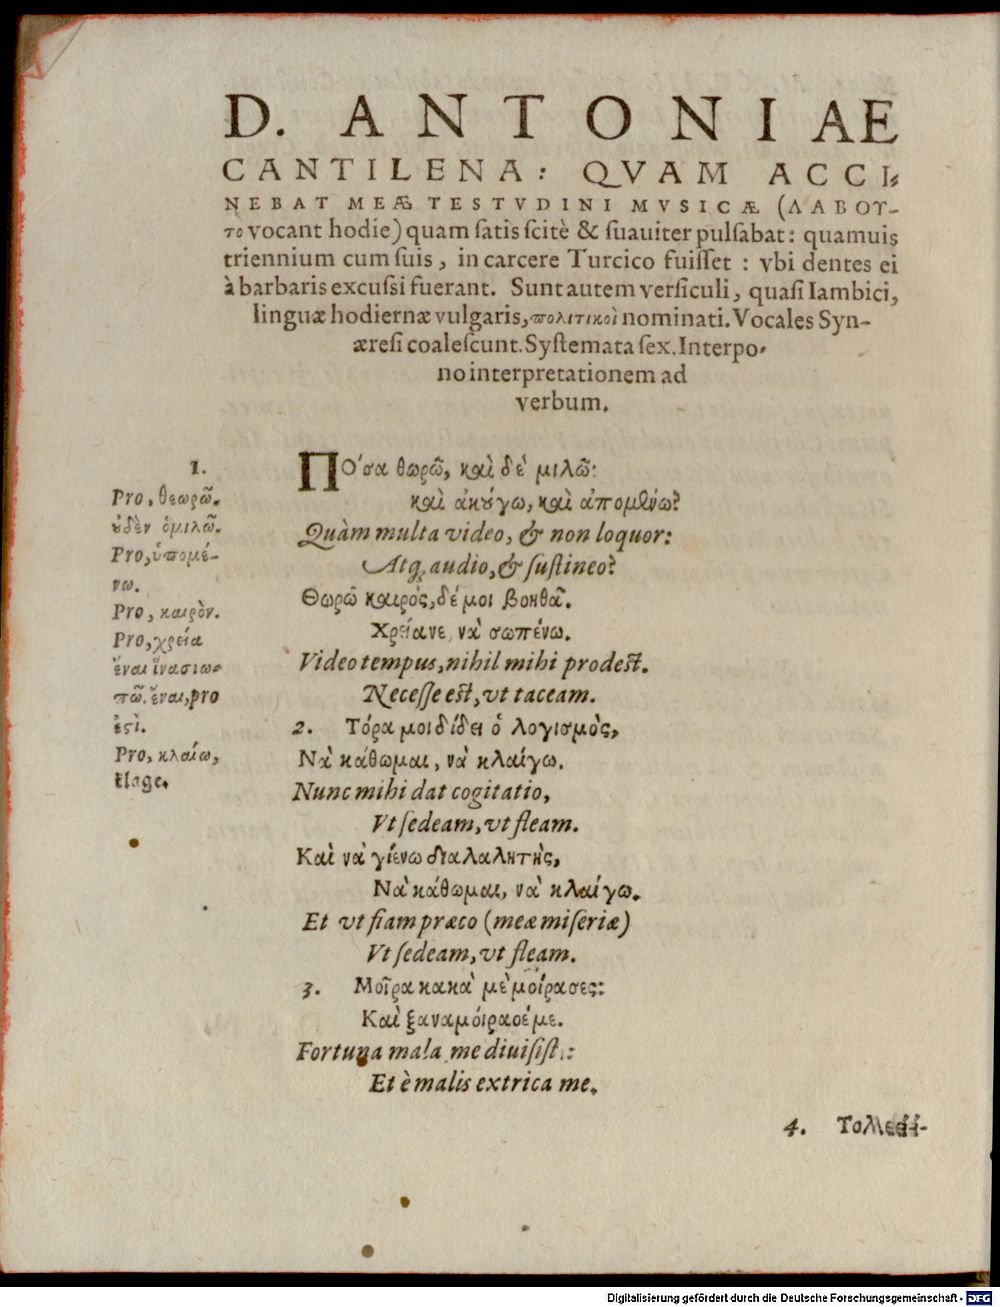 D. ANTONIAE
CANTILENA: QVAM ACCI-
NEBAT MEÆ TESTVDINI MVSICÆ (ΛΑΒΟΥ-
το vocant hodie) quam satis scitè & suauiter pulsabat: quamuis
triennium cum suis, in carcere Turcico fuisset: vbi dentes ei
à barbaris excussi fuerant. Sunt autem versiculi, quasi Iambici,
linguæ hodiernæ vulgaris, πολιτικοὶ nominati. Vocales Syn-
æresi coalescunt. Systemata sex. Interpo-
no interpretationem ad
verbum.
1.
Pro, θεωρῶ.
ȣδὲν ὁμιλῶ.
Pro, ὑπομέ-
νω.
Pro, καιρὸν.
Pro, χρεία
ἔναι ἵνα σιω-
πῶ. ἔναι, pro
ἐϛὶ.
Pro, κλαίω,
κlage.
ΠΌσα θωρῶ, καὶ δὲ μιλῶ:
καὶ ἀκȣ́γω, καὶ ἀπομένω?
Quàm multa video, & non loquor:
Atq, audio, & sustineo?
Θωρῶ καιρός, δέ μοι βοηθᾶ.
Χρείανε, νὰ σωπένω.
Video tempus, nihil mihi prodest.
Necesse est, vt taceam.
2. Τόρα μοι δίδει ὁ λογισμὸς,
Νὰ κάθωμαι, νὰ κλαίγω.
Nunc mihi dat cogitatio,
Vt sedeam, vt fleam.
Καὶ νὰ γιένω διαλαλητὴς,
Νὰ κάθωμαι, νὰ κλαίγω.
Et vt fiam præco (meæ miseriæ)
Vt sedeam, vt fleam.
3. Μοῖρα κακὰ μὲ μοίρασες:
Καὶ ξαναμόιρασέ με.
Fortuna mala me diuisisti:
Et è malis extrica me.
4.
Digitalisierung gefördert durch die Deutsche Forschungsgemeinschaft - DFG